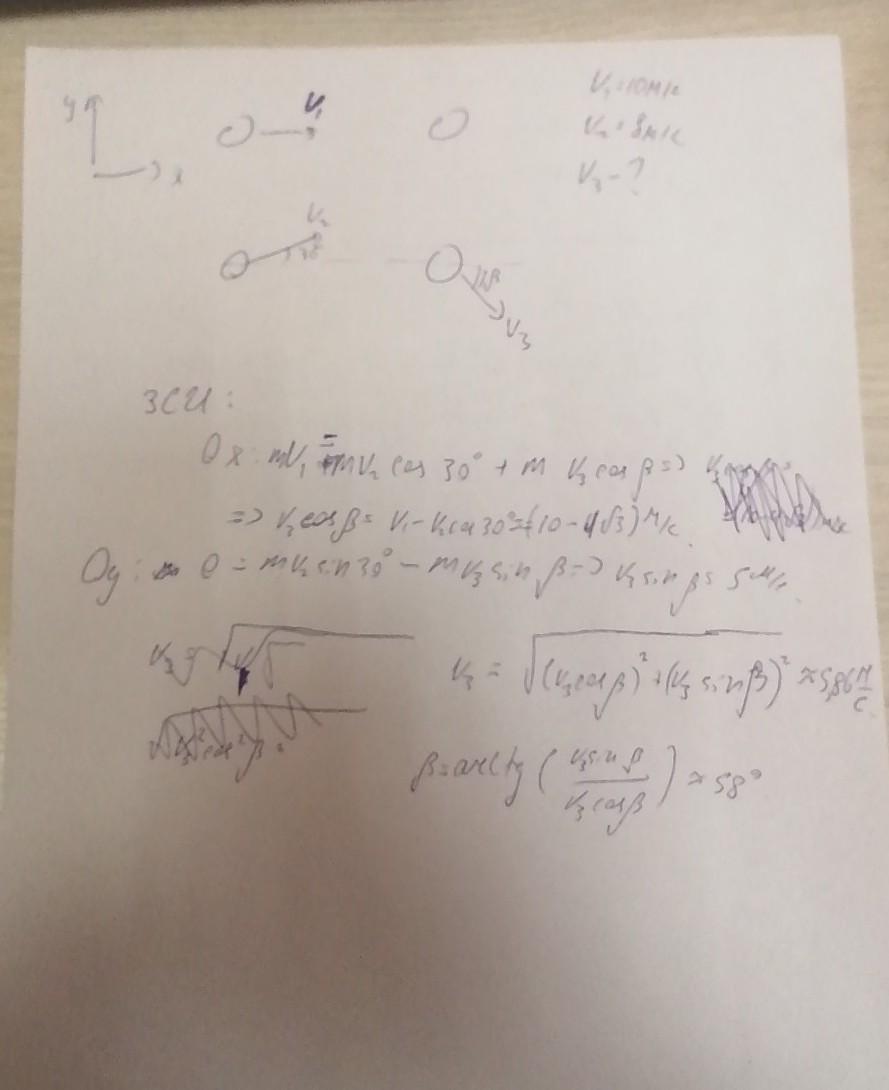 y
x
V₁
V₁ = 10 м/с
V₂ = 8 м/с
V₃ - ?
V₂
30°
β
V₃
ЗСИ:
Ox: mV₁ = mV₂ cos 30° + m V₃ cos β =>
=> V₃ cos β = V₁ - V₂ cos 30° = (10 - 4√3) м/с.
Oy: 0 = mV₂ sin 30° - mV₃ sin β => V₃ sin β = 5 м/с.
V₃ = √((V₃ cos β)² + (V₃ sin β)²) ≈ 5,86 м/с.
β = arctg (V₃ sin β / V₃ cos β) ≈ 58°